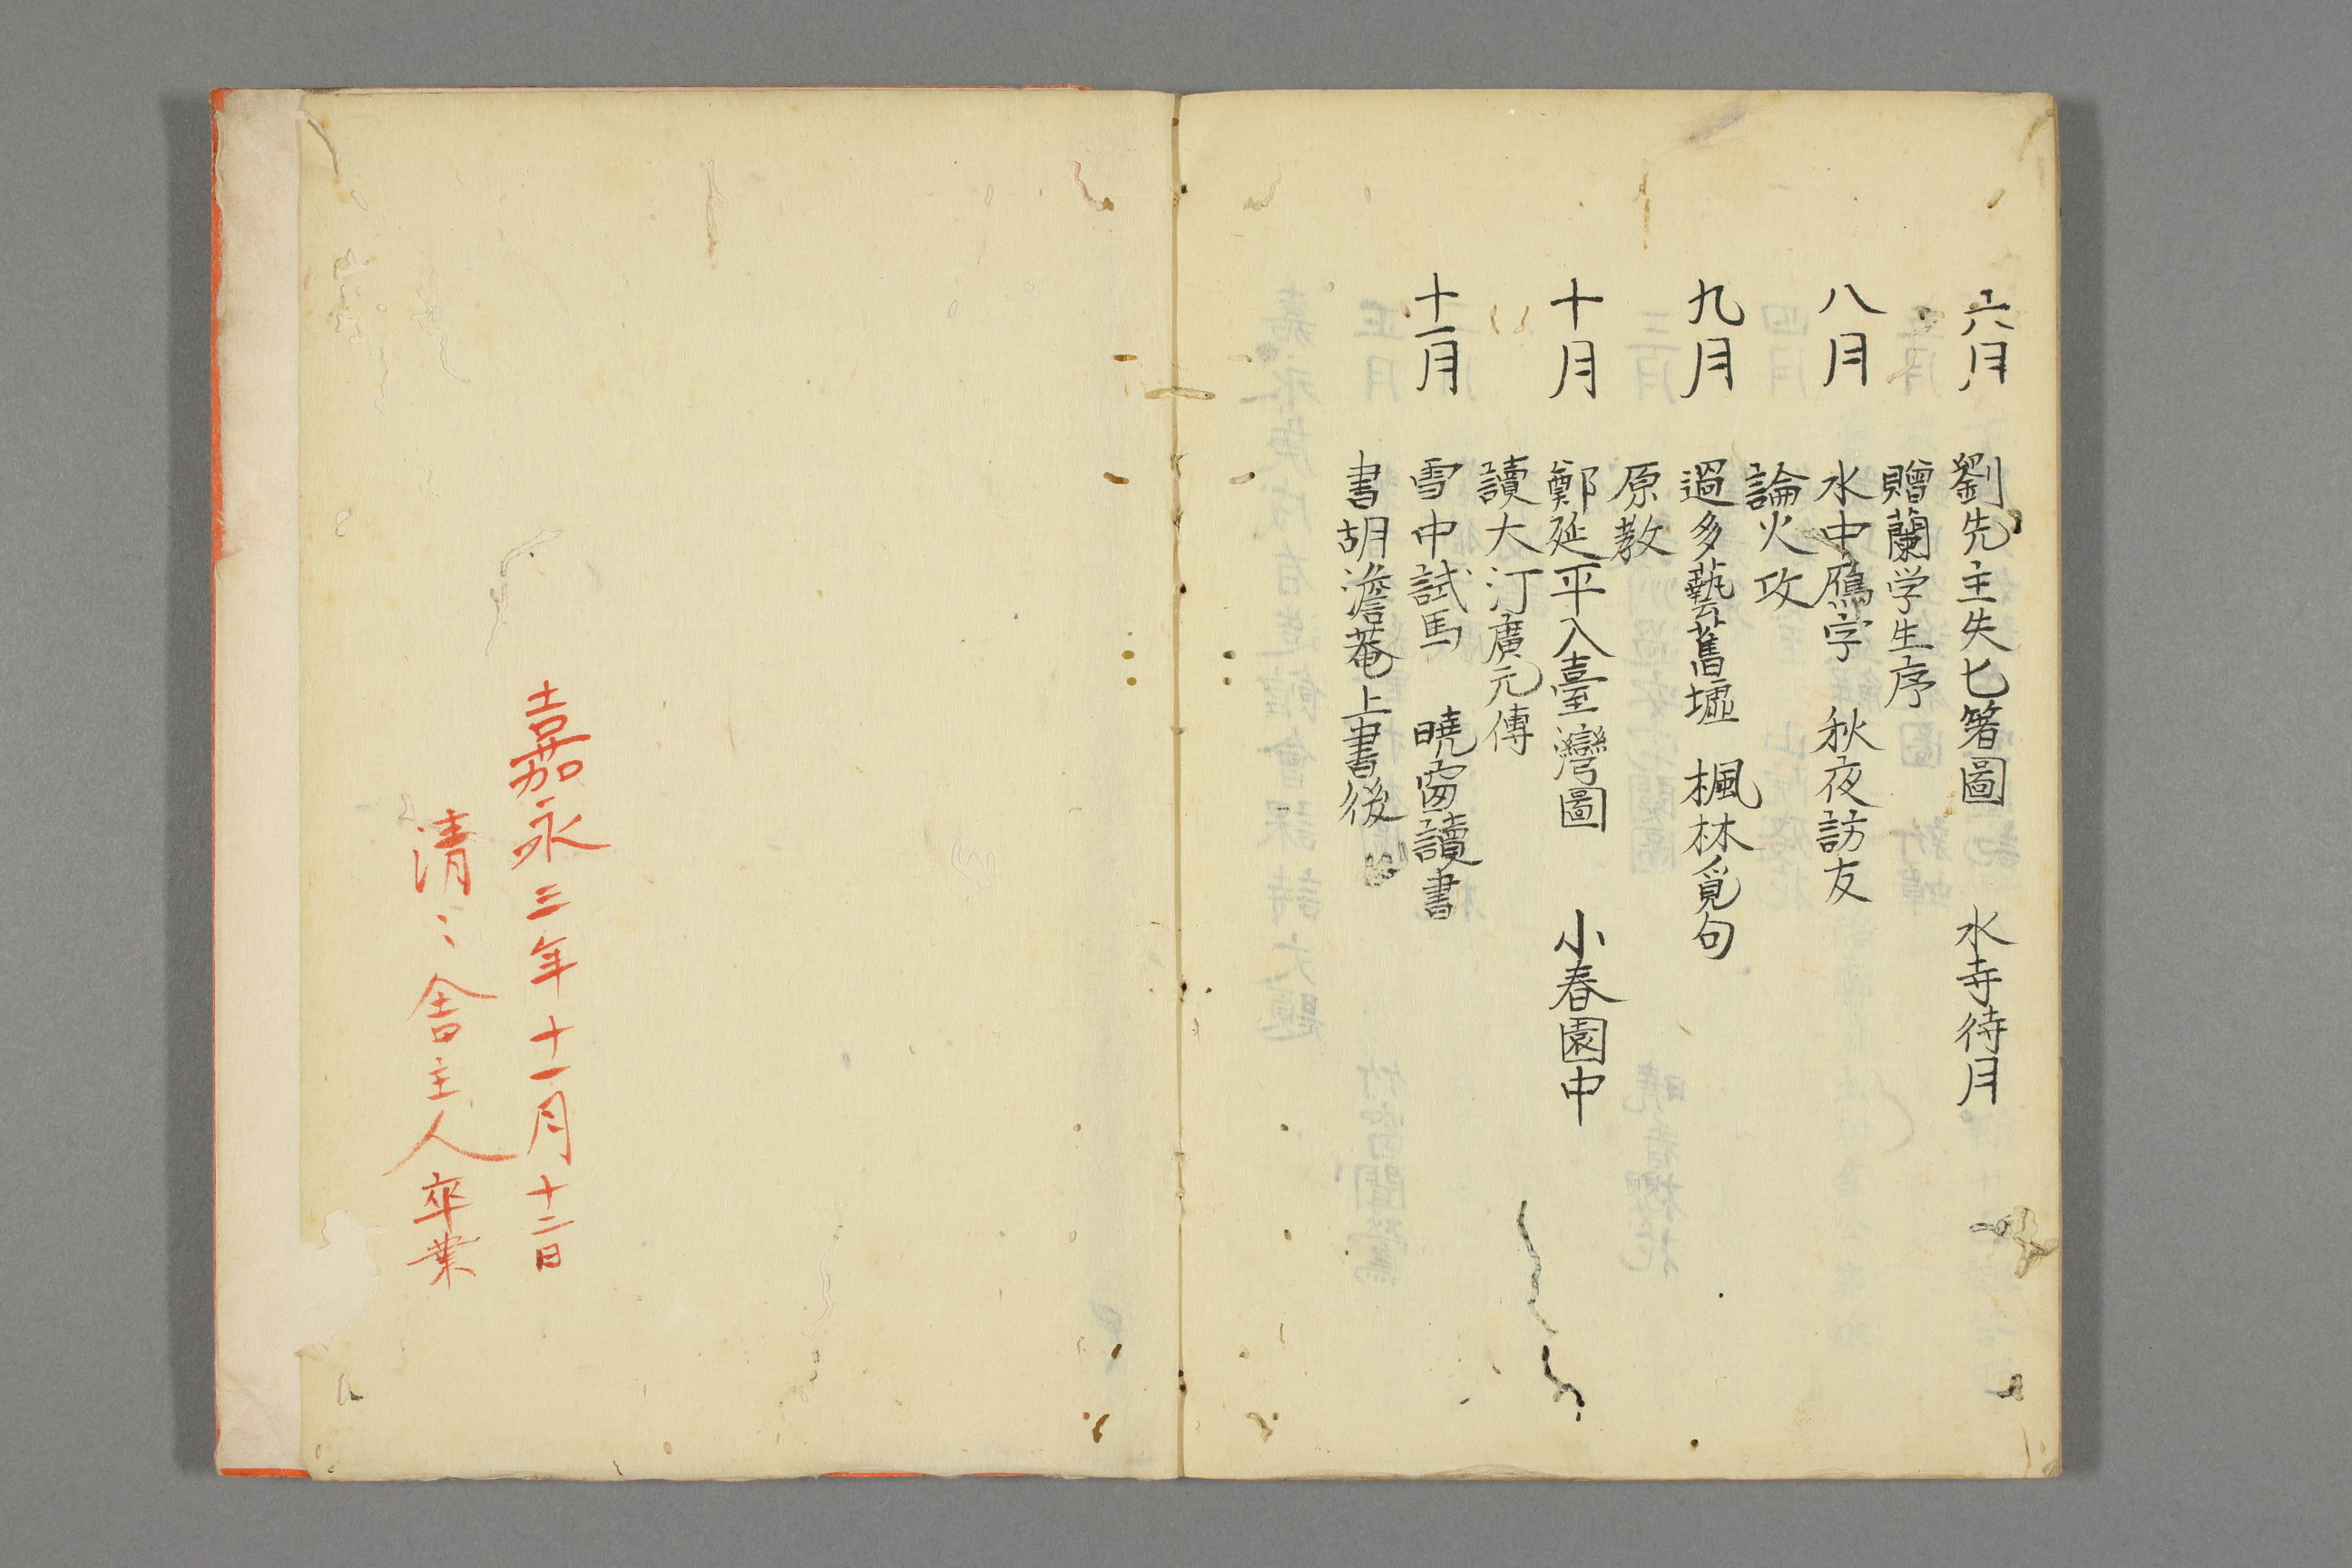 六月　劉先主失匕箸圖　水寺待月
贈蘭学生序
八月　水中鴈字　秋夜訪友
論火攻
九月　過多藝舊墟　楓林覓句
原教
十月　鄭延平入臺灣圖　小春園中
讀大江廣元傳
十一月　雪中試馬　曉窗讀書
書胡澹菴上書後
嘉永三年十一月十二日
清〻舎主人卒業